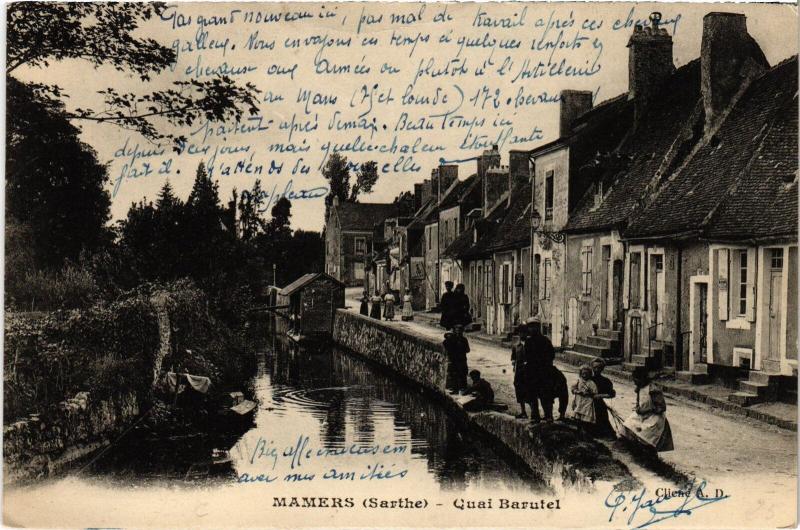 Pas grand nouveau ici, pas mal de travail après ces chevaux
galleux. Nous envoyons ces temps ci quelques renforts
chevaux aux Armées ou plutôt à l'Artillerie
au Mans (75 et lourde) 172 chevaux
partent après demain. Beau temps ici
depuis deux jours mais quelle chaleur étouffante
fait il. J'attends des nouvelles
Bien affectueusement
avec mes amitiés
MAMERS (Sarthe) - Quai Barutel
Cliché A. D.